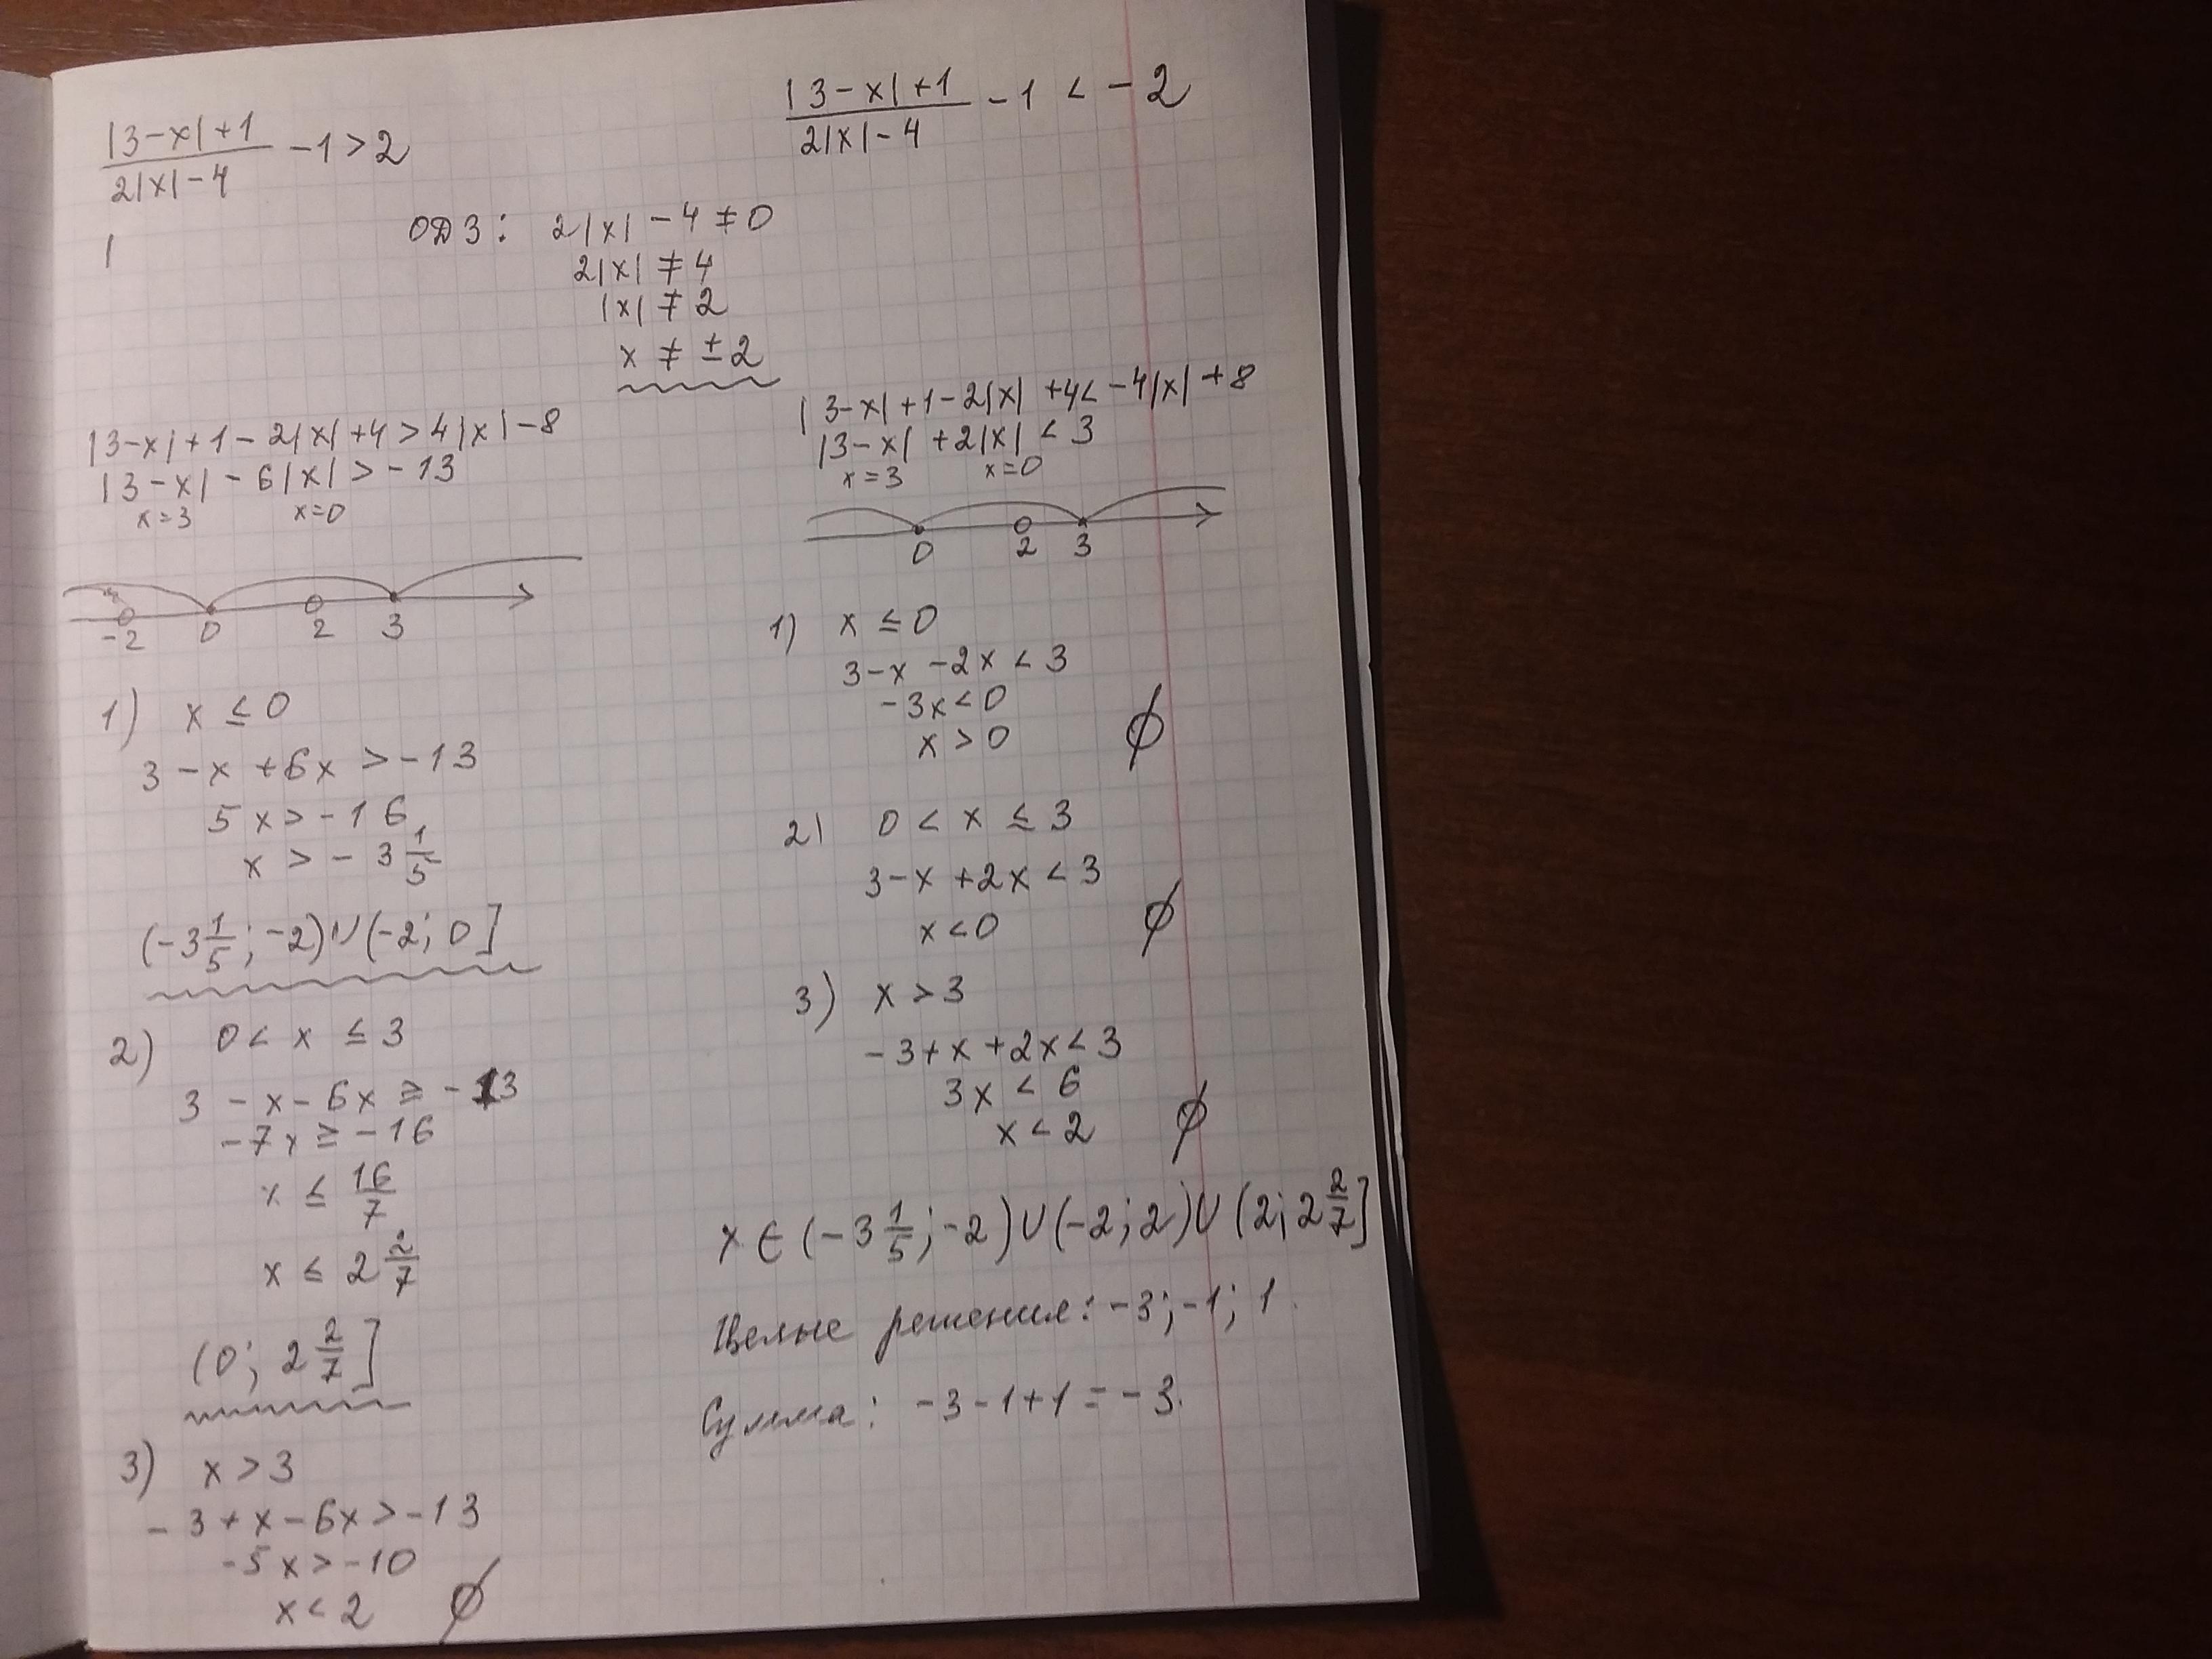 |3-x|+1 / 2|x|-4 -1>2
ОДЗ: 2|x| -4 ≠0
2|x| ≠ 4
|x| ≠ 2
x ≠ ±2
|3-x|+1-2|x|+4>4|x|-8
|3-x|-6|x|>-13
x=3 x=0
-2 0 2 3
1) x ≤ 0
3-x+6x>-13
5x>-16
x>-3 1/5
(-3 1/5; -2)∪(-2; 0]
2) 0< x ≤3
3-x-6x ≥ -13
-7x ≥ -16
x ≤ 16/7
x ≤ 2 2/7
(0; 2 2/7]
3) x>3
-3+x-6x>-13
-5x>-10
x<2 ∅
|3-x|+1 / 2|x|-4 -1 < -2
|3-x|+1-2|x|+4<-4|x|+8
|3-x|+2|x|<3
x=3 x=0
0 2 3
1) x ≤0
3-x-2x<3
-3x<0
x>0 ∅
2) 0<x≤3
3-x+2x<3
x<0 ∅
3) x>3
-3+x+2x<3
3x<6
x<2 ∅
x∈(-3 1/5; -2)∪(-2; 2)∪(2; 2 2/7]
Целые решения: -3; -1; 1.
Сумма: -3-1+1=-3.